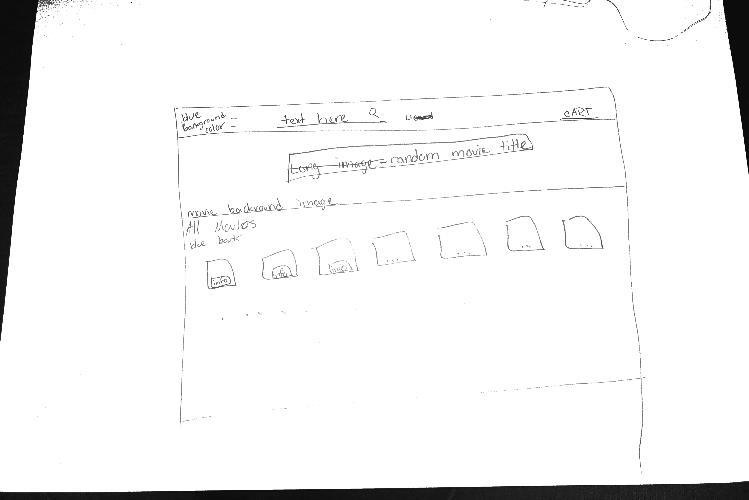 blue
background
color
text here
CART
Long image = random movie title
movie background image
All Movies
blue back
info
info
info